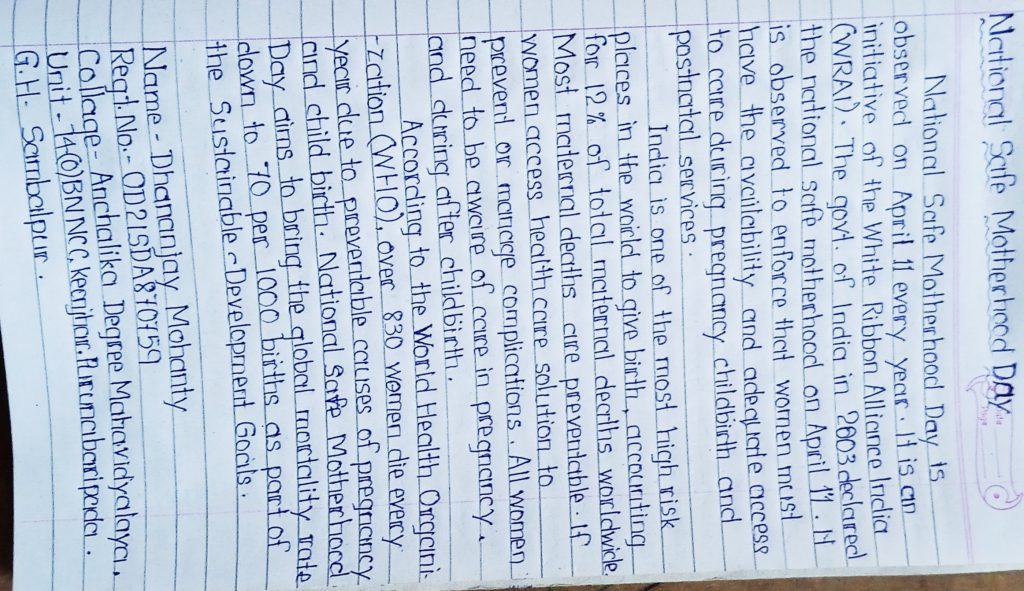 National Safe Motherhood Day
National Safe Motherhood Day is
observed on April 11 every year. It is an
initiative of the White Ribbon Alliance India
(WRAI). The govt. of India in 2003 declared
the national safe motherhood on April 11. It
is observed to enforce that women must
have the availability and adequate access
to care during pregnancy childbirth and
postnatal services.
India is one of the most high risk
places in the world to give birth, accounting
for 12% of total maternal deaths worldwide.
Most maternal deaths are preventable. If
women access health care solution to
prevent or manage complications. All women
need to be aware of care in pregnancy.
and during after childbirth.
According to the World Health Organi-
-zation (WHO), over 830 women die every
year due to preventable causes of pregnancy
and child birth. National Safe Motherhood
Day aims to bring the global mortality rate
down to 70 per 1000 births as part of
the Sustainable-Development Goals.
Name - Dhananjay Mohanty
Regt. No.- OD21SDA870759
Collage- Anchalika Degree Mahavidyalaya,
Unit - 14(O)BNNCC, keonjhar.
G.H- Sambalpur.